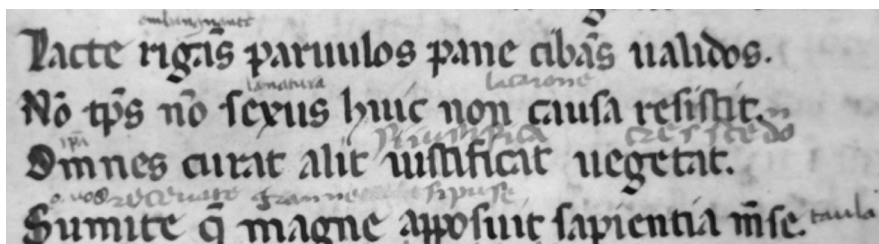 Lacte rigãs paruulos pane cibãs ualidos.
la natura la carone
Nõ tp̃s nõ sexus huic non causa resistit.
Omnes curat alit iustificat uegetat.
Sumite q̃ magne apposuit sapientia m̃se. taula